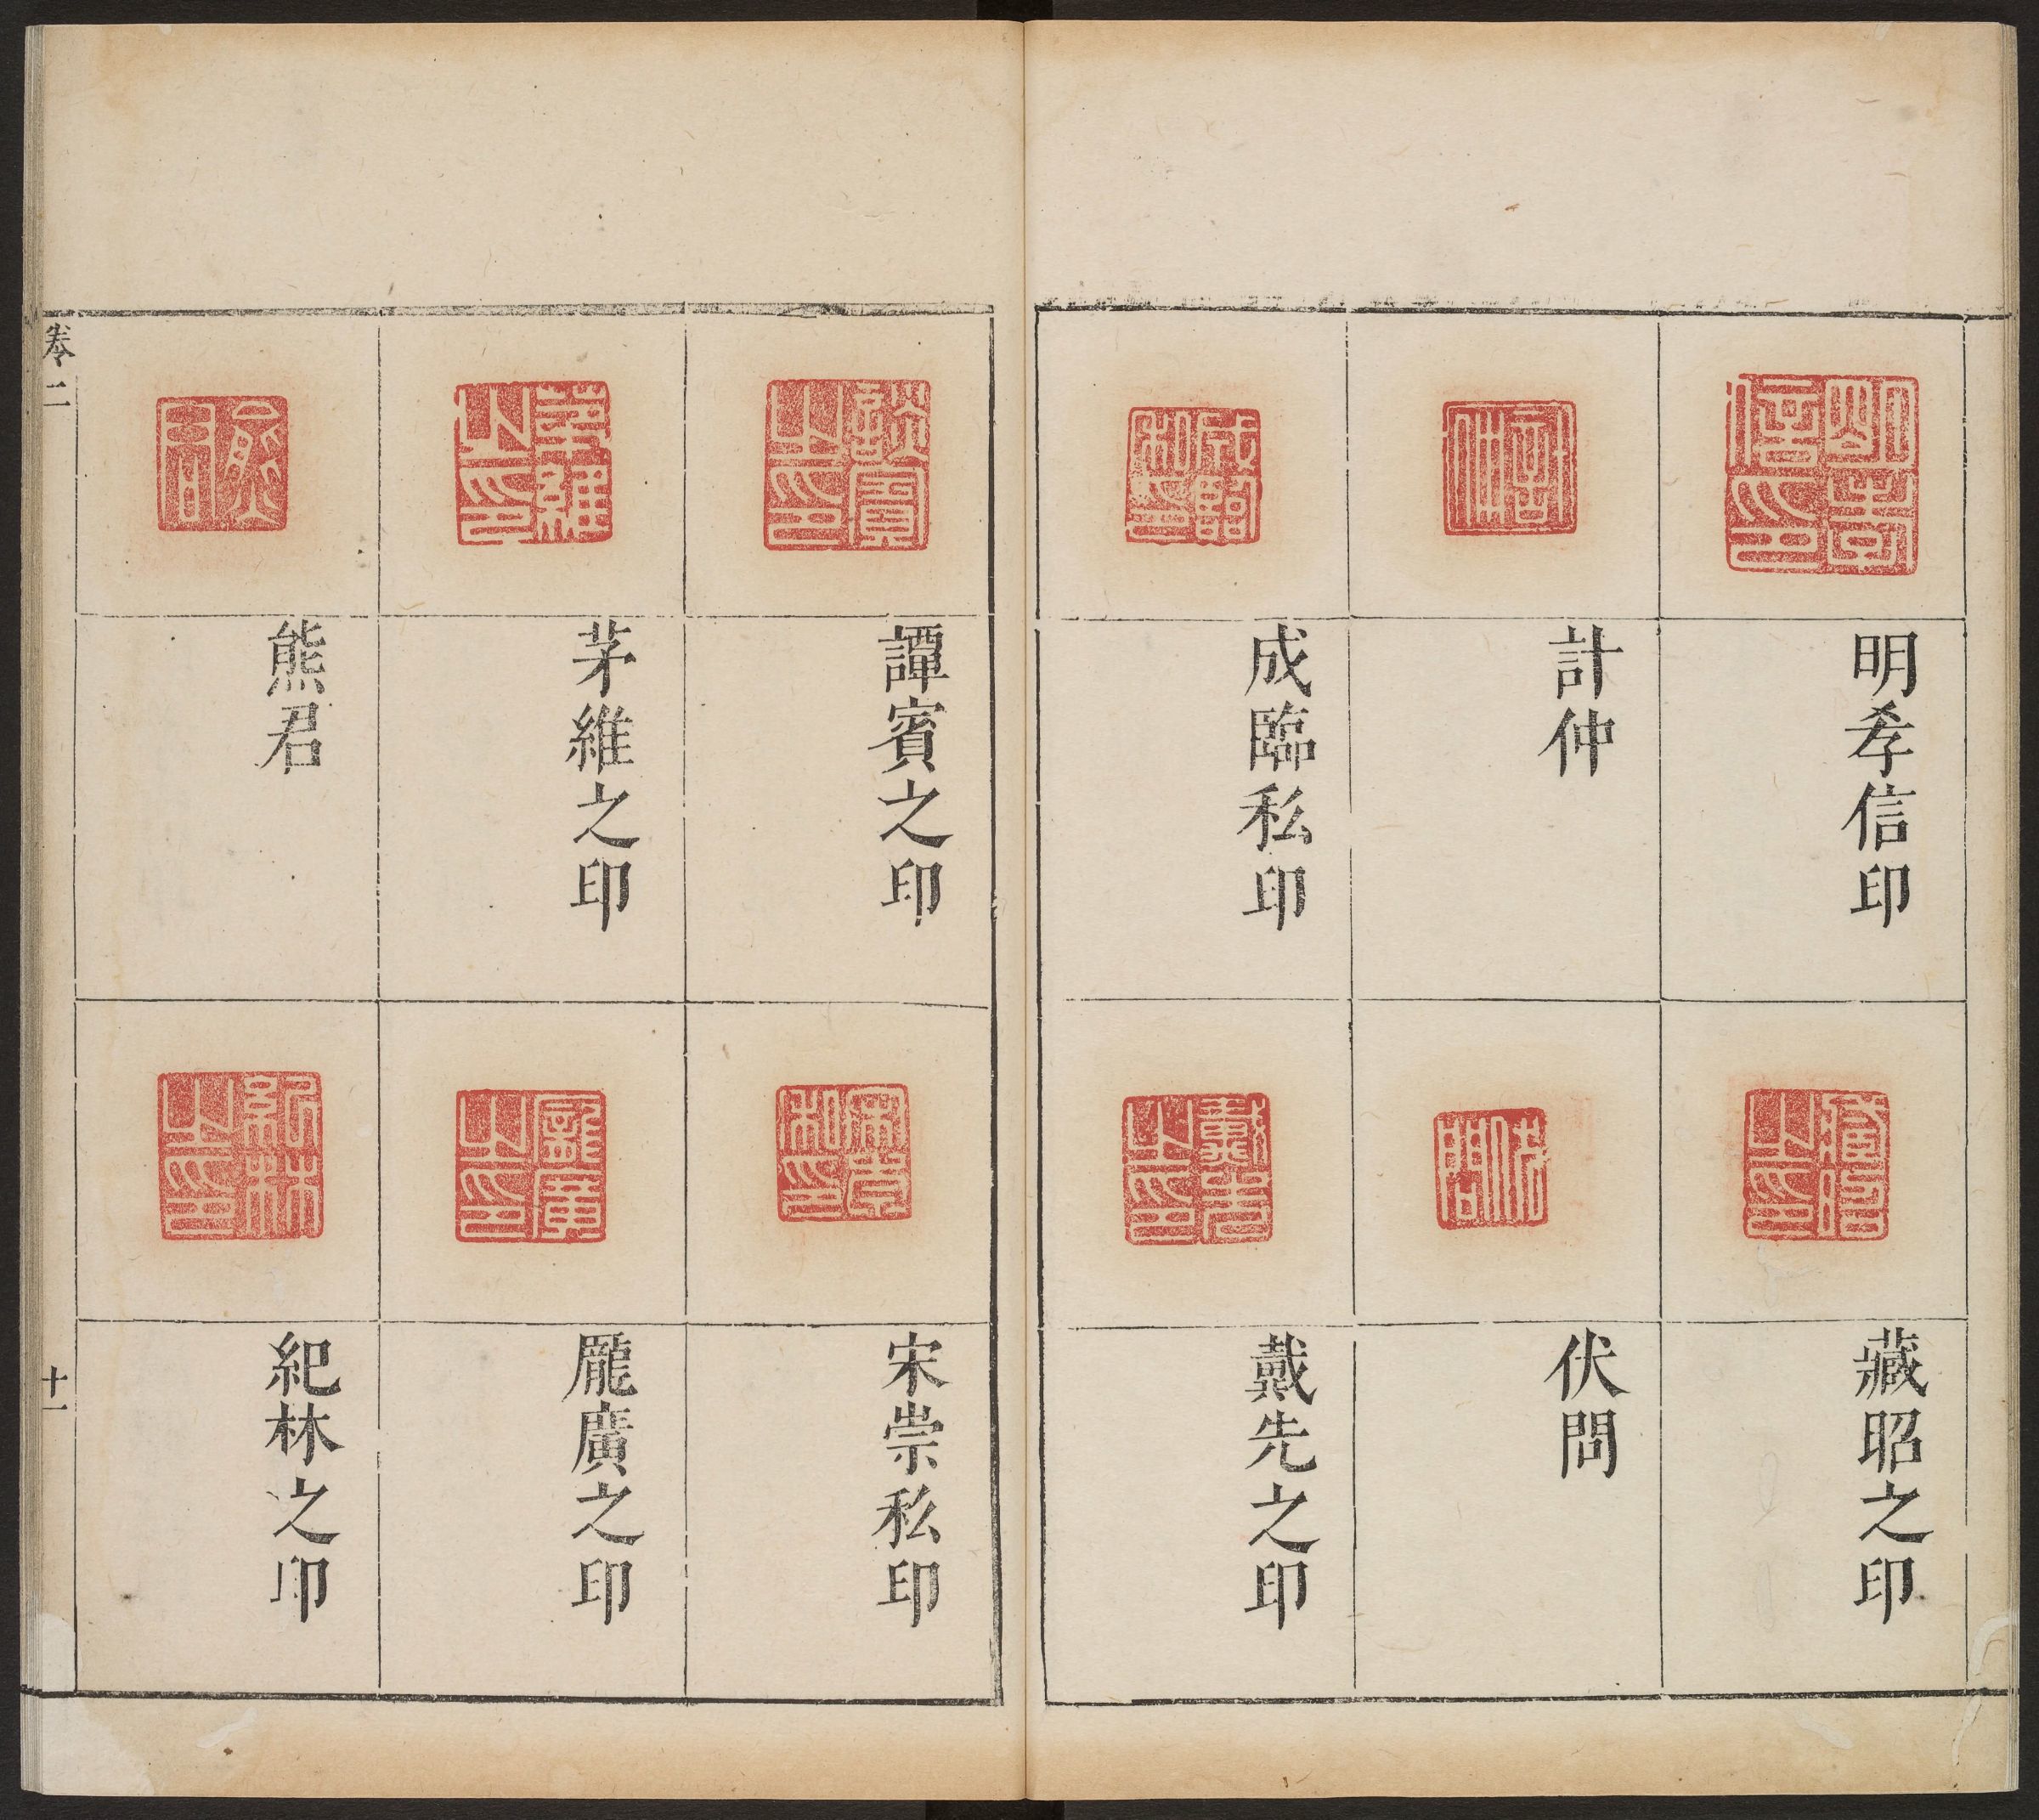 明孝信印
計仲
成臨私印
藏昭之印
伏問
戴先之印
譚賓之印
茅維之印
熊君
宋崇私印
龎廣之印
紀林之印
卷二
十一